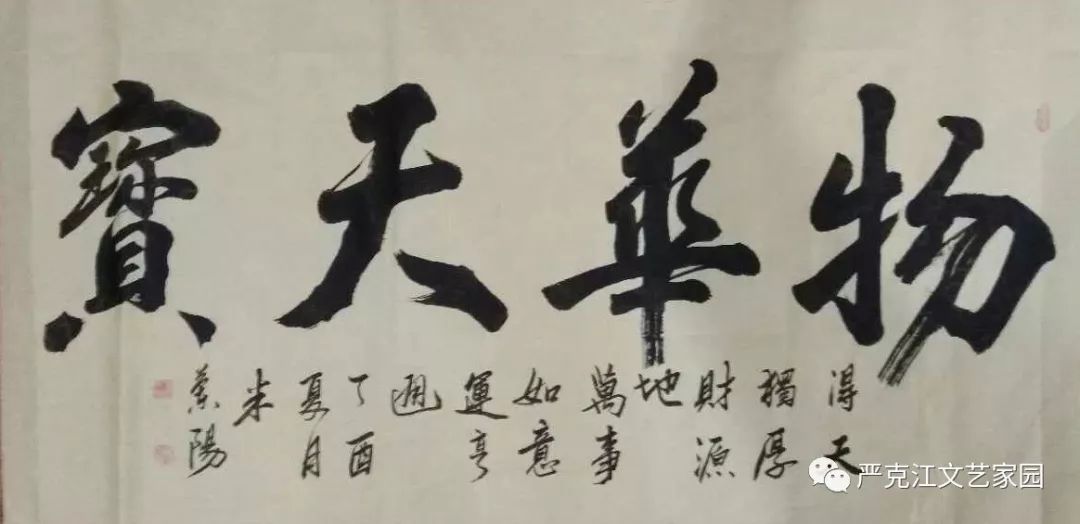 物華天寳
得天
獨厚
財源
地
萬事
如意
運亨
通
丁酉
夏月
米
陽
严克江文艺家园